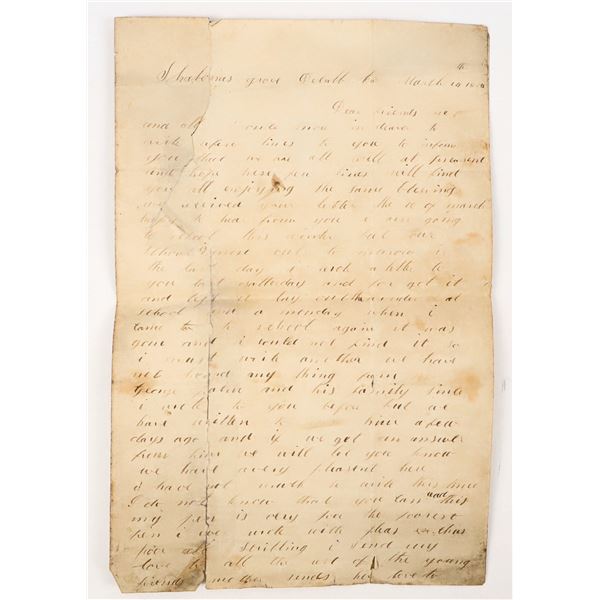 Shabonas grove Dekalb Co March 19
th
Dear friends
and all i once more indeavor to
write a few lines to you to inform
you that we are all well at preasent
and hope these few lines will find
you all enjoying the same blessing
we received your letter the 16 of march
to hear from you i am going
to school this winter but our
school is most out to morrow is
the last day i wrote a letter to
you last satterday and for got it
and left it lay at
school and a monday when i
came to school again it was
gone and i could not find it so
i must write another we have
not heard any thing from
George and his familly since
i wrote to you before but we
have written to him a few
days ago and if we get an answer
from him we will let you know
we have a very pleasent here
i have not much to write this time
I do not know that you can read this
my pen is very poor the poorest
pen i ever wrote with pleas excuse
poor scribling i send my
love to all the rest of the young
friends mother sends her love to